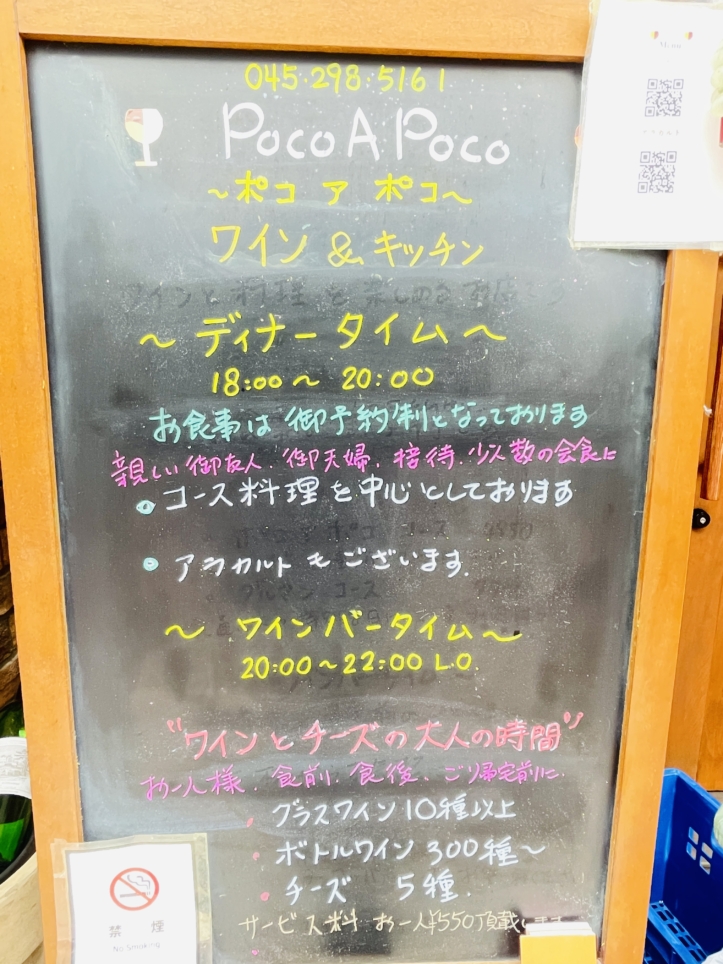 Menu
045・298・5161
Poco A Poco
～ポコ ア ポコ～
ワイン & キッチン
～ ディナータイム ～
18:00～ 20:00
お食事は 御予約制となっております
親しい御友人、御夫婦、接待、少人数の会食に
コース料理を中心としております
アラカルトもございます。
～ ワインバータイム～
20:00～22:00 L.O.
"ワインとチーズの大人の時間"
お一人様、食前、食後、ご帰宅前に
グラスワイン10種以上
ボトルワイン 300種～
チーズ 5種.
サービス料 お一人¥550頂戴します
禁 煙
No Smoking